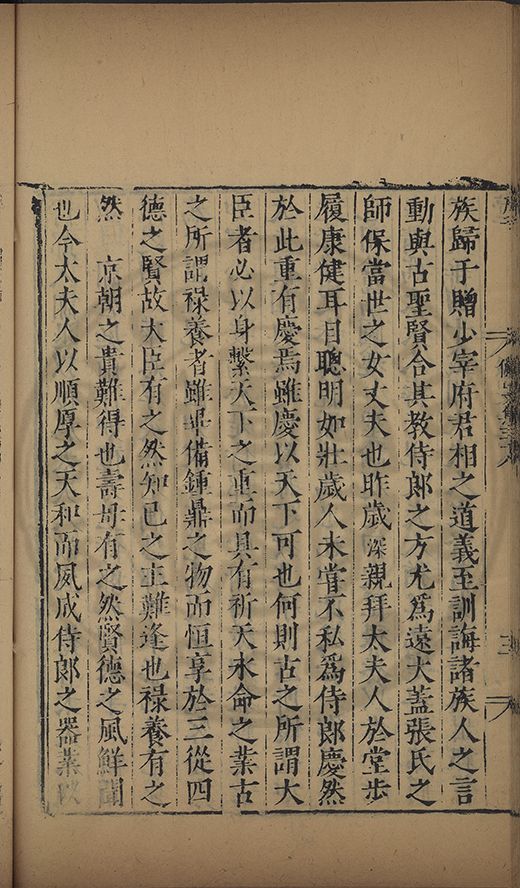 族歸于贈少宰府君相之道義至訓誨諸族人之言
動與古聖賢合其教侍郎之方尤為遠大蓋張氏之
師保當世之女丈夫也昨歲深親拜太夫人於堂步
履康健耳目聰明如壯歲人未嘗不私為侍郎慶然
於此重有慶焉雖慶以天下可也何則古之所謂大
臣者必以身繫天下之重而具有祈天永命之業古
之所謂祿養者雖畢備鍾鼎之物而恒享於三從四
德之賢故大臣有之然知己之主難逢也祿養有之
然　京朝之貴難得也壽母有之然賢德之風鮮聞
也今太夫人以順厚之天和而夙成侍郎之器業以